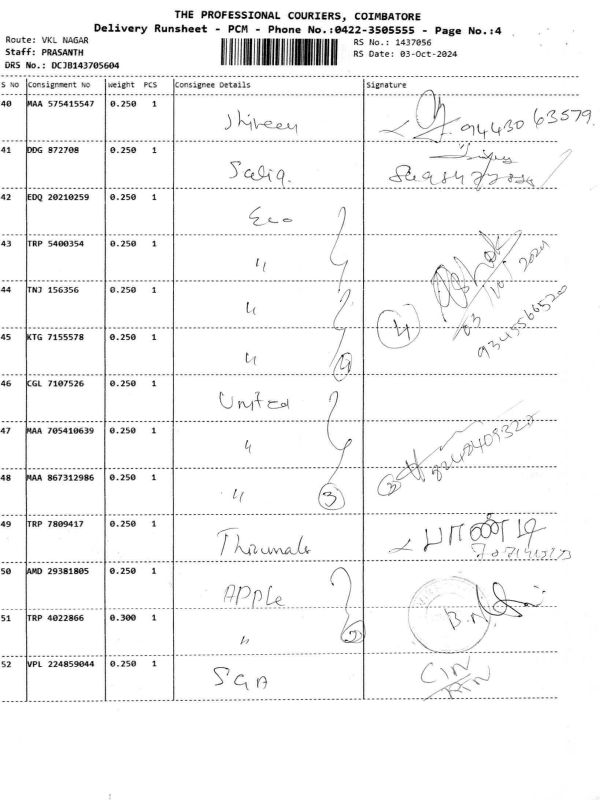 THE PROFESSIONAL COURIERS, COIMBATORE
Delivery Runsheet - PCM - Phone No.:0422-3505555 - Page No.:4
Route: VKL NAGAR
RS No.: 1437056
Staff: PRASANTH
RS Date: 03-Oct-2024
DRS No.: DCJB143705604
S No Consignment No Weight PCS Consignee Details Signature
40 MAA 575415547 0.250 1 94430 63579
41 DDG 872708 0.250 1
42 EDQ 20210259 0.250 1 Eco
43 TRP 5400354 0.250 1 "
44 TNJ 156356 0.250 1 " 4
45 KTG 7155578 0.250 1 " 4
46 CGL 7107526 0.250 1 United
47 MAA 705410639 0.250 1 "
48 MAA 867312986 0.250 1 " 3 3
49 TRP 7809417 0.250 1 பாண்டி
50 AMD 29381805 0.250 1 Apple
51 TRP 4022866 0.300 1 " 2 B.N
52 VPL 224859044 0.250 1 SGA